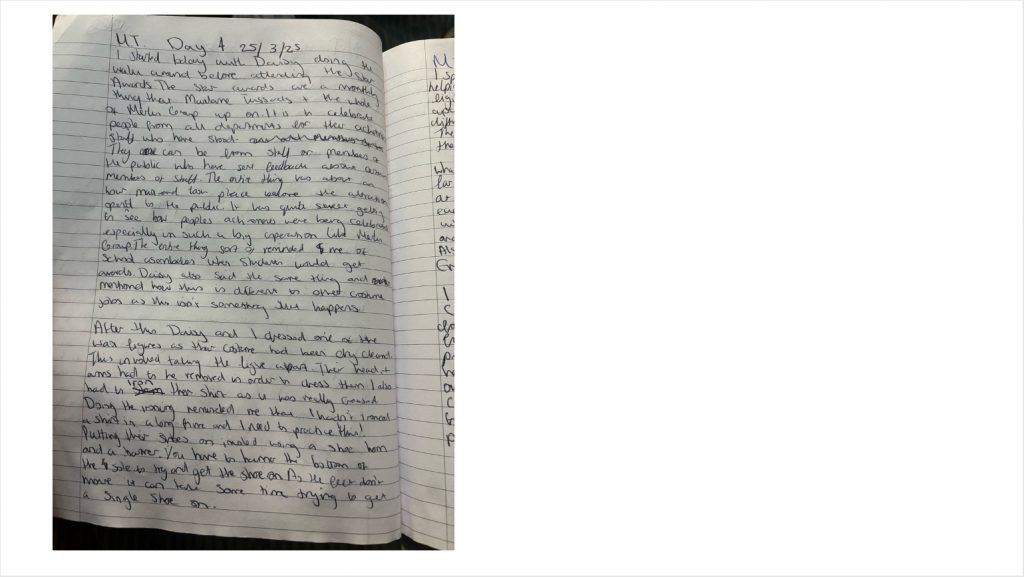 MT. Day 4 25/3/25
I started today with Daisy doing the
walk around before attending the Star
Awards. The star awards are a monthly
thing that Madame Tussauds + the whole
of Merlin Group up on. It is to celebrate
people from all departments for their
staff who have stood
They can be from staff or members of
the public who have sent feedback about
members of staff. The entire thing was about an
hour and took place before the attraction
opend to the public. It was quite sweet getting
to see how peoples achivments were being celebrated
especially in such a big operation like Merlin
Group. The entire thing sort of reminded me of
School assemblies when students would get
awards. Daisy also said the same thing and
mentioned how this is different to other costume
jobs as this isn't something that happens.
After this Daisy and I dressed one of the
wax figures as their costume had been dry cleand.
This involved taking the figure apart. Their head +
arms had to be removed in order to dress them. I also
had to iron their shirt as it was really creased.
Doing the ironing reminded me that I hadn't Ironed
a shirt in a long time and I need to practice this!
Putting their shoes on involed using a shoe horn
and a hammer. You have to hamer the bottom of
the sole to try and get the shoe on. As the feet don't
move it can take some time trying to get
a single shoe on.
M
I sp
help
The
the
wha
for
at
wi
and
Als
Gr
I
C